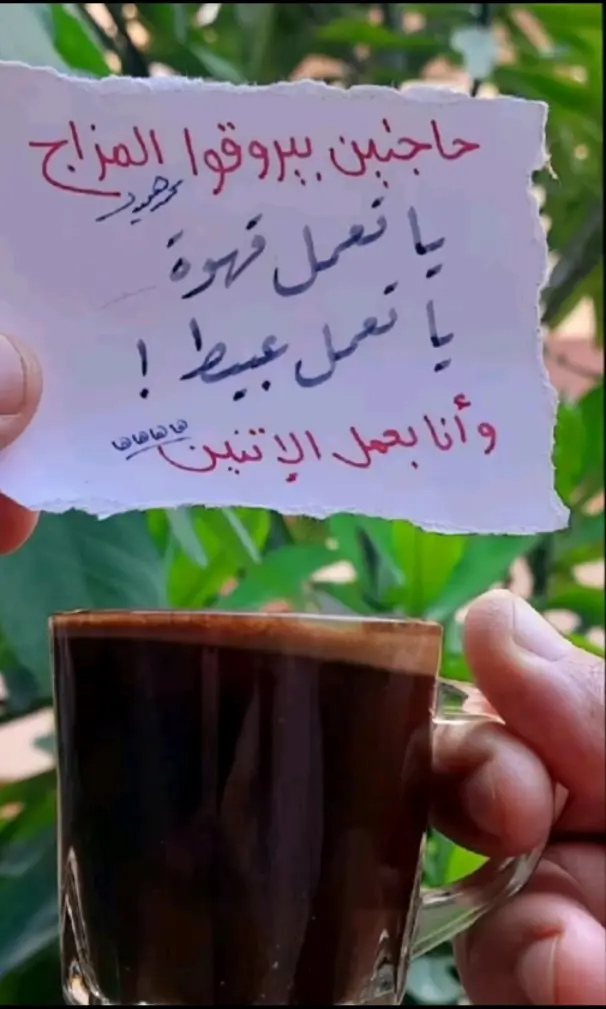 حاجتين بيروقوا المزاج
يا تعمل قهوة
يا تعمل عبيط !
وأنا بعمل الإتنين هاهاهاها